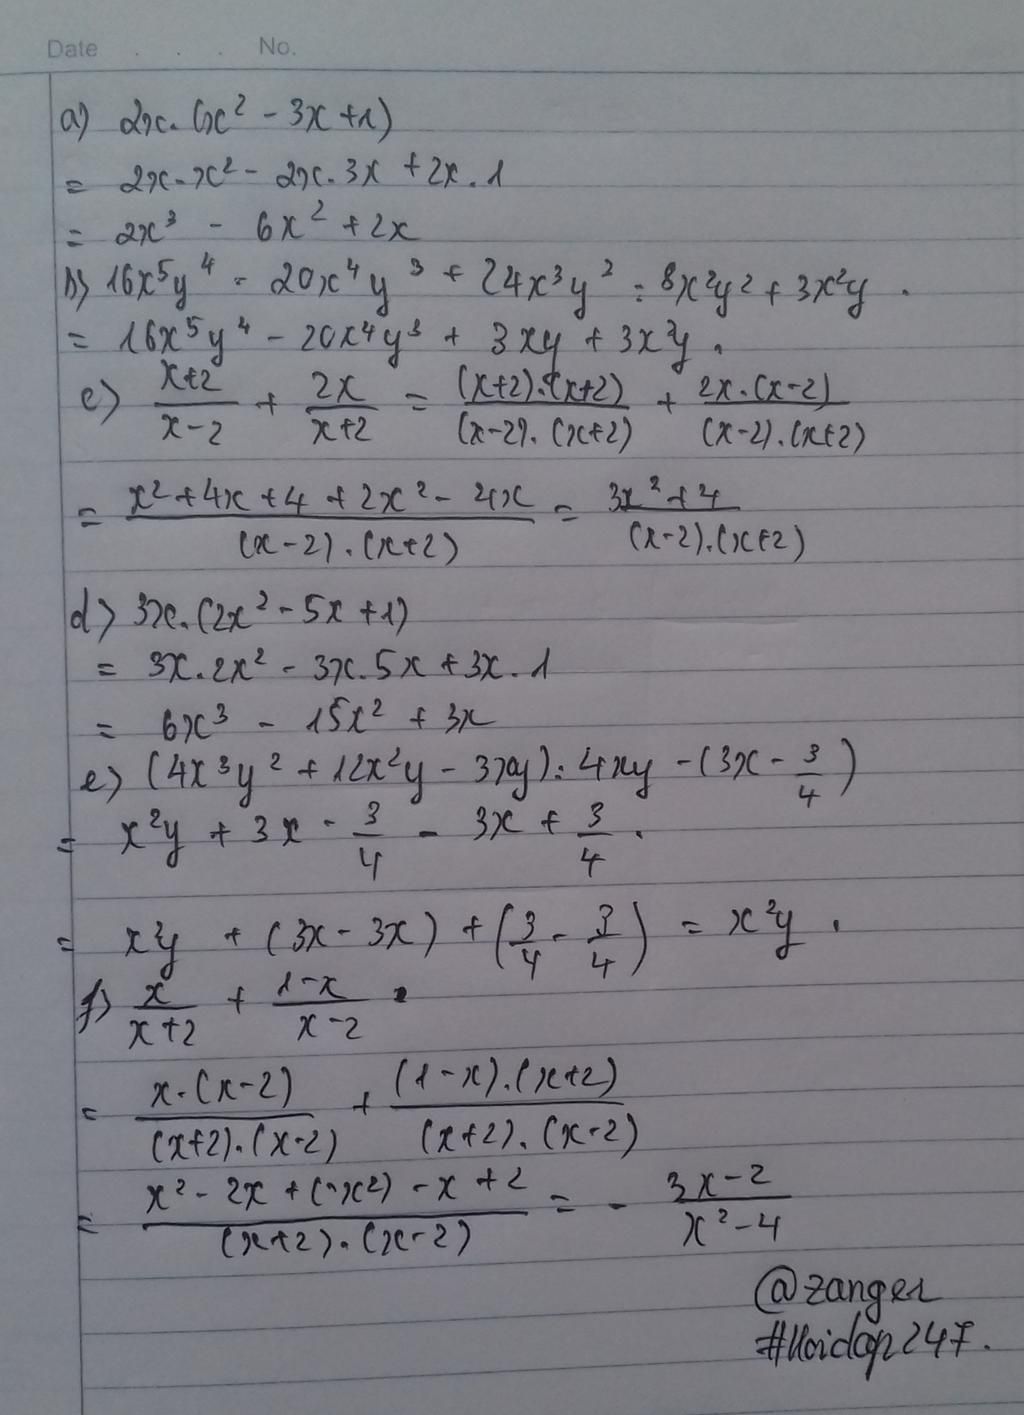 Date . . . No.
a) 2x.(x² - 3x + 1)
= 2x.x² - 2x.3x + 2x.1
= 2x³ - 6x² + 2x
b) 16x⁵y⁴ - 20x⁴y³ + 24x³y² : 8x²y² + 3x²y .
= 16x⁵y⁴ - 20x⁴y³ + 3xy + 3x²y .
c) (x+2)/(x-2) + 2x/(x+2) = ((x+2).(x+2))/((x-2).(x+2)) + (2x.(x-2))/((x-2).(x+2))
= (x² + 4x + 4 + 2x² - 4x)/((x-2).(x+2)) = (3x² + 4)/((x-2).(x+2))
d) 3x.(2x² - 5x + 1)
= 3x.2x² - 3x.5x + 3x.1
= 6x³ - 15x² + 3x
e) (4x³y² + 12x²y - 3xy) : 4xy - (3x - 3/4)
= x²y + 3x - 3/4 - 3x + 3/4 .
= x²y + (3x - 3x) + (3/4 - 3/4) = x²y .
f) x/(x+2) + (1-x)/(x-2) .
= (x.(x-2))/((x+2).(x-2)) + ((1-x).(x+2))/((x+2).(x-2))
= (x² - 2x + (-x²) - x + 2)/((x+2).(x-2)) = - (3x-2)/(x²-4)
@zanger
#Hoidap247.